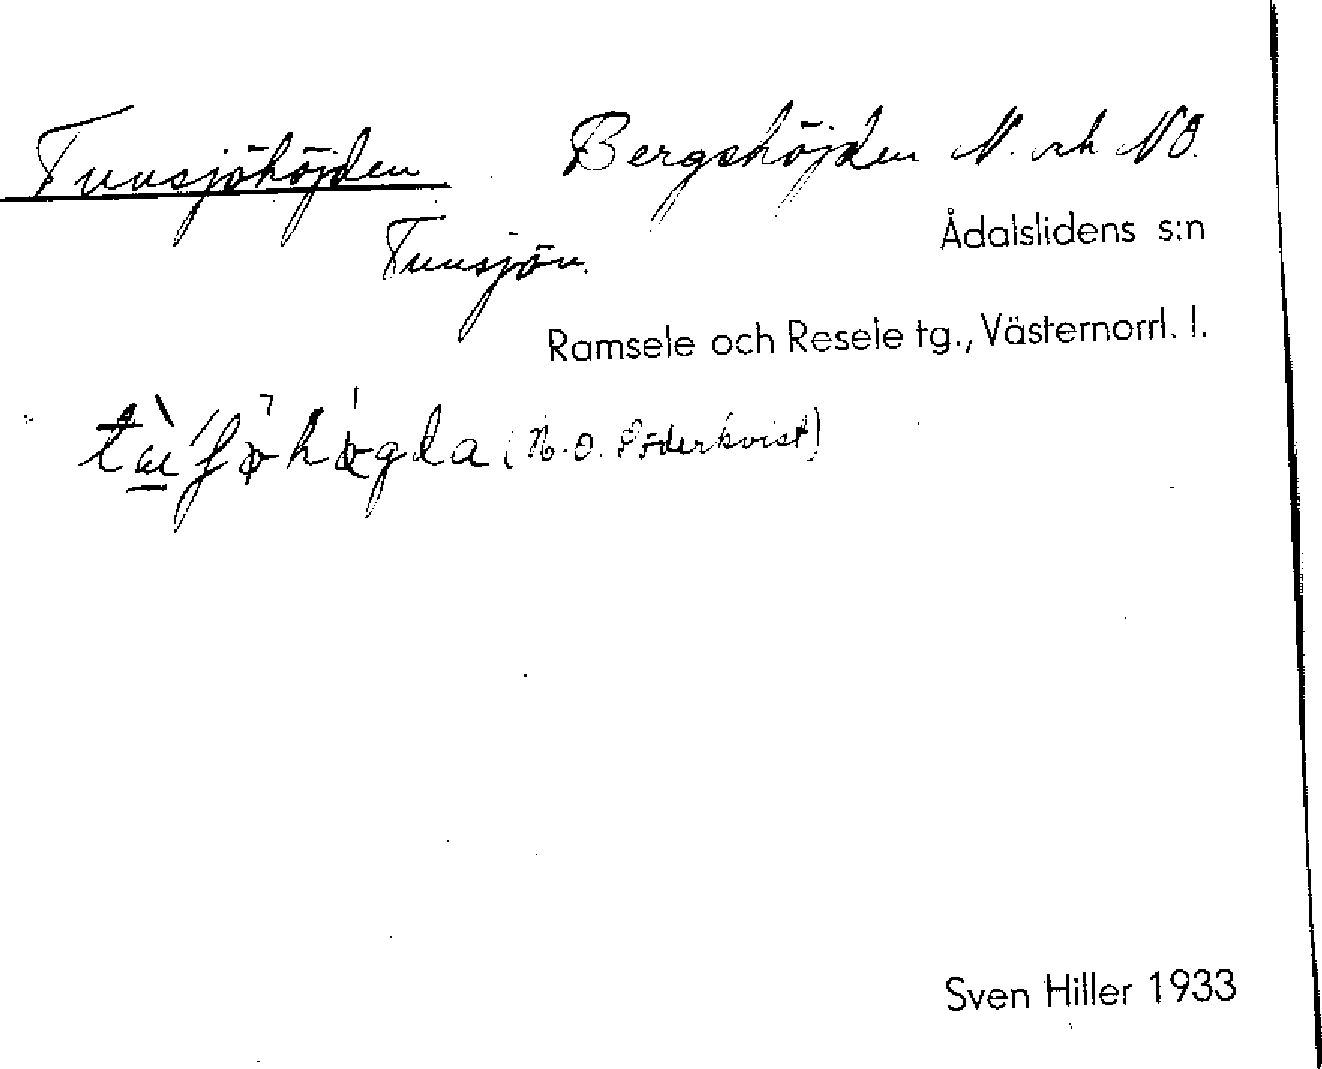 Tunsjöhöjden Bergshöjden N. och NO.
Tunsjön.
Ådalslidens s:n
Ramsele och Resele tg., Västernorrl. l.
(N. O. Söderkvist)
Sven Hiller 1933